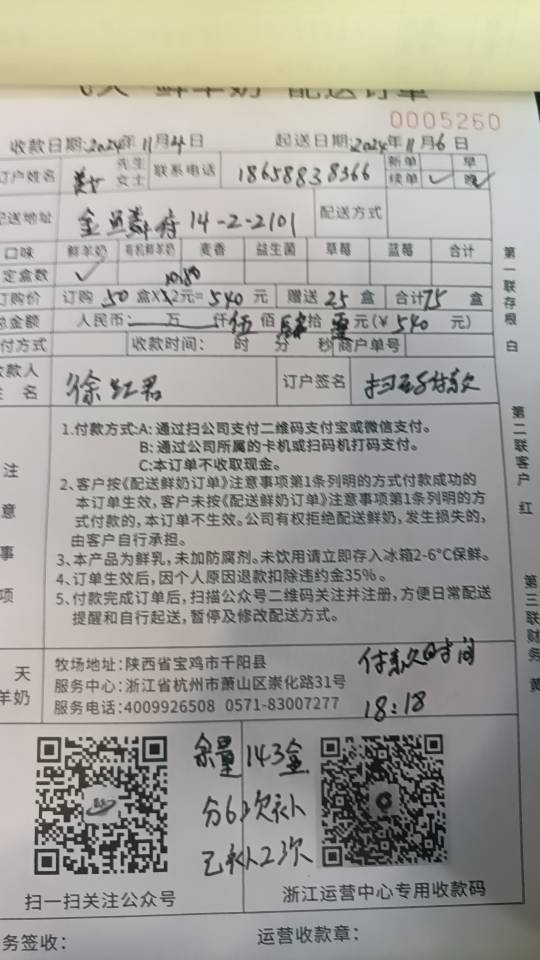 鲜羊奶 配送订单
0005260
收款日期:2024年11月4日 起送日期:2024年11月6日
订户姓名 先生 女士 联系电话 18658838366 新单 续单 ✓ 早 晚 ✓
配送地址 金 府 14-2-2101 配送方式
口味 鲜羊奶 有机鲜羊奶 麦香 益生菌 草莓 蓝莓 合计
定盒数 ✓
10.80
订购价 订购 50 盒X 元= 540 元 赠送 25 盒 合计 75 盒
总金额 人民币: 万 仟 伍 佰 肆 拾 零 元(¥ 540 元)
付方式 收款时间: 时 分 秒 商户单号
收款人 姓名 徐红君 订户签名 扫码付款
注意事项
1.付款方式:A: 通过扫公司支付二维码支付宝或微信支付。
B: 通过公司所属的卡机或扫码机打码支付。
C:本订单不收取现金。
2、客户按《配送鲜奶订单》注意事项第1条列明的方式付款成功的
本订单生效,客户未按《配送鲜奶订单》注意事项第1条列明的方
式付款的,本订单不生效。公司有权拒绝配送鲜奶,发生损失的,
由客户自行承担。
3、本产品为鲜乳,未加防腐剂。未饮用请立即存入冰箱2-6°C保鲜。
4、订单生效后,因个人原因退款扣除违约金35%。
5、付款完成订单后,扫描公众号二维码关注并注册,方便日常配送
提醒和自行起送,暂停及修改配送方式。
第一联存根 白
第二联客户 红
第三联财务 黄
天
羊奶
牧场地址:陕西省宝鸡市千阳县
服务中心:浙江省杭州市萧山区崇化路31号
服务电话:4009926508 0571-83007277
付款时间
18:18
余量 143盒
分6次补
已补2次
扫一扫关注公众号
浙江运营中心专用收款码
务签收: 运营收款章: